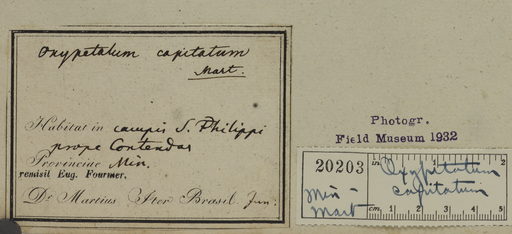 Oxypetalum capitatum
Mart.
Habitat in campis S. Philippi
prope Contendas
Provinciae Min.
remisit Eug. Fourmer.
Dr Martius Iter Brasil. Jun.
Photogr.
Field Museum 1932
20203
Oxypetalum
capitatum
Min -
Mart
in. 1 2
cm. 1 2 3 4 5